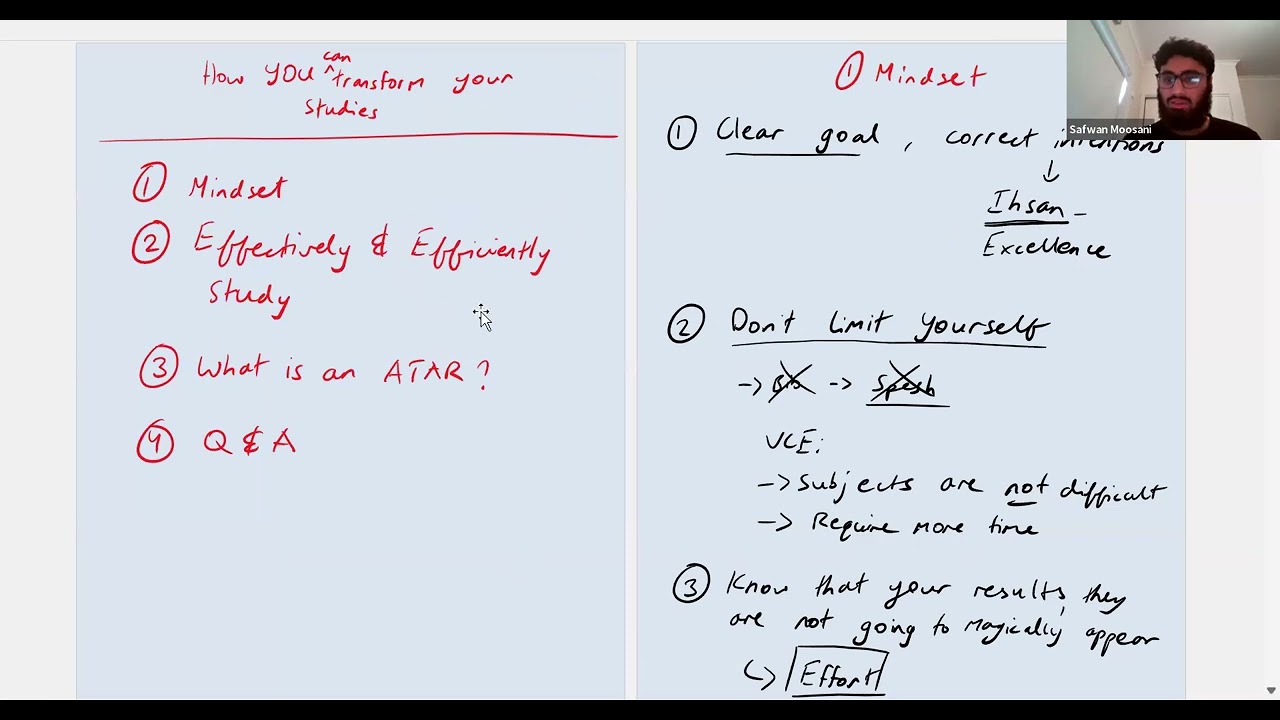 How YOU can transform your
studies
① Mindset
② Effectively & Efficiently
Study
③ What is an ATAR?
④ Q & A
① Mindset
Safwan Moosani
① Clear goal, correct intentions
↓
Ihsan -
Excellence
② Don't limit yourself
-> -> Spesh
VCE:
-> Subjects are not difficult
-> Require more time
③ Know that your results, they
are not going to magically appear
↳ Effort